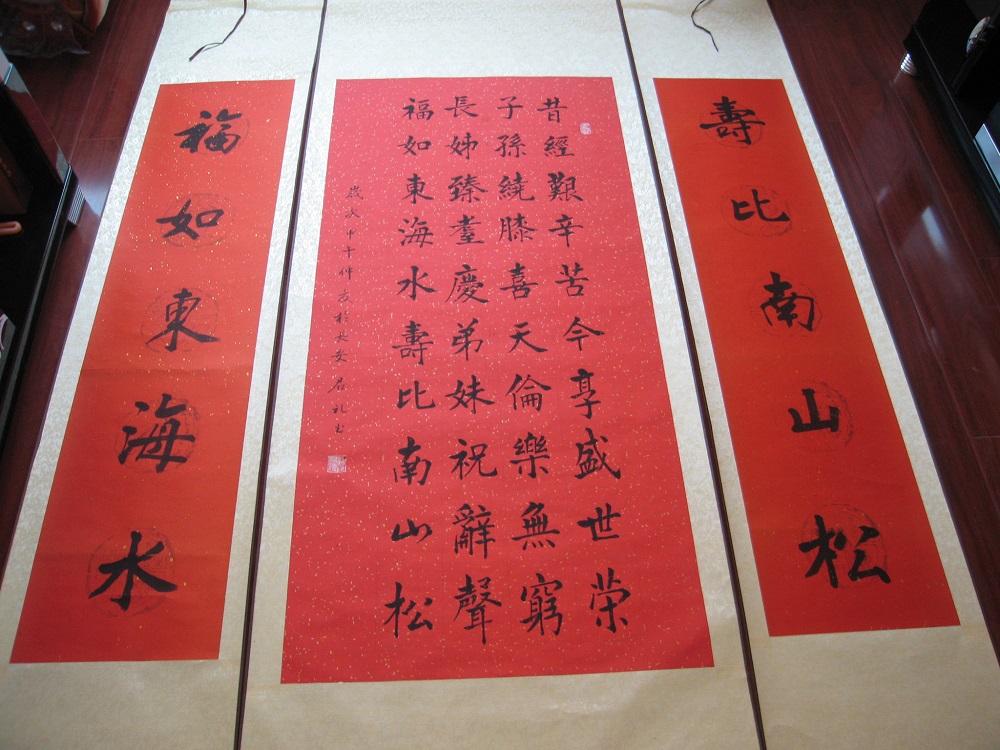 壽比南山松
昔經艱辛苦今享盛世荣
子孫繞膝喜天倫樂無窮
長姊臻耋慶弟妹祝辭聲
福如東海水壽比南山松
歲次甲午仲夏於长安 君礼书
福如東海水